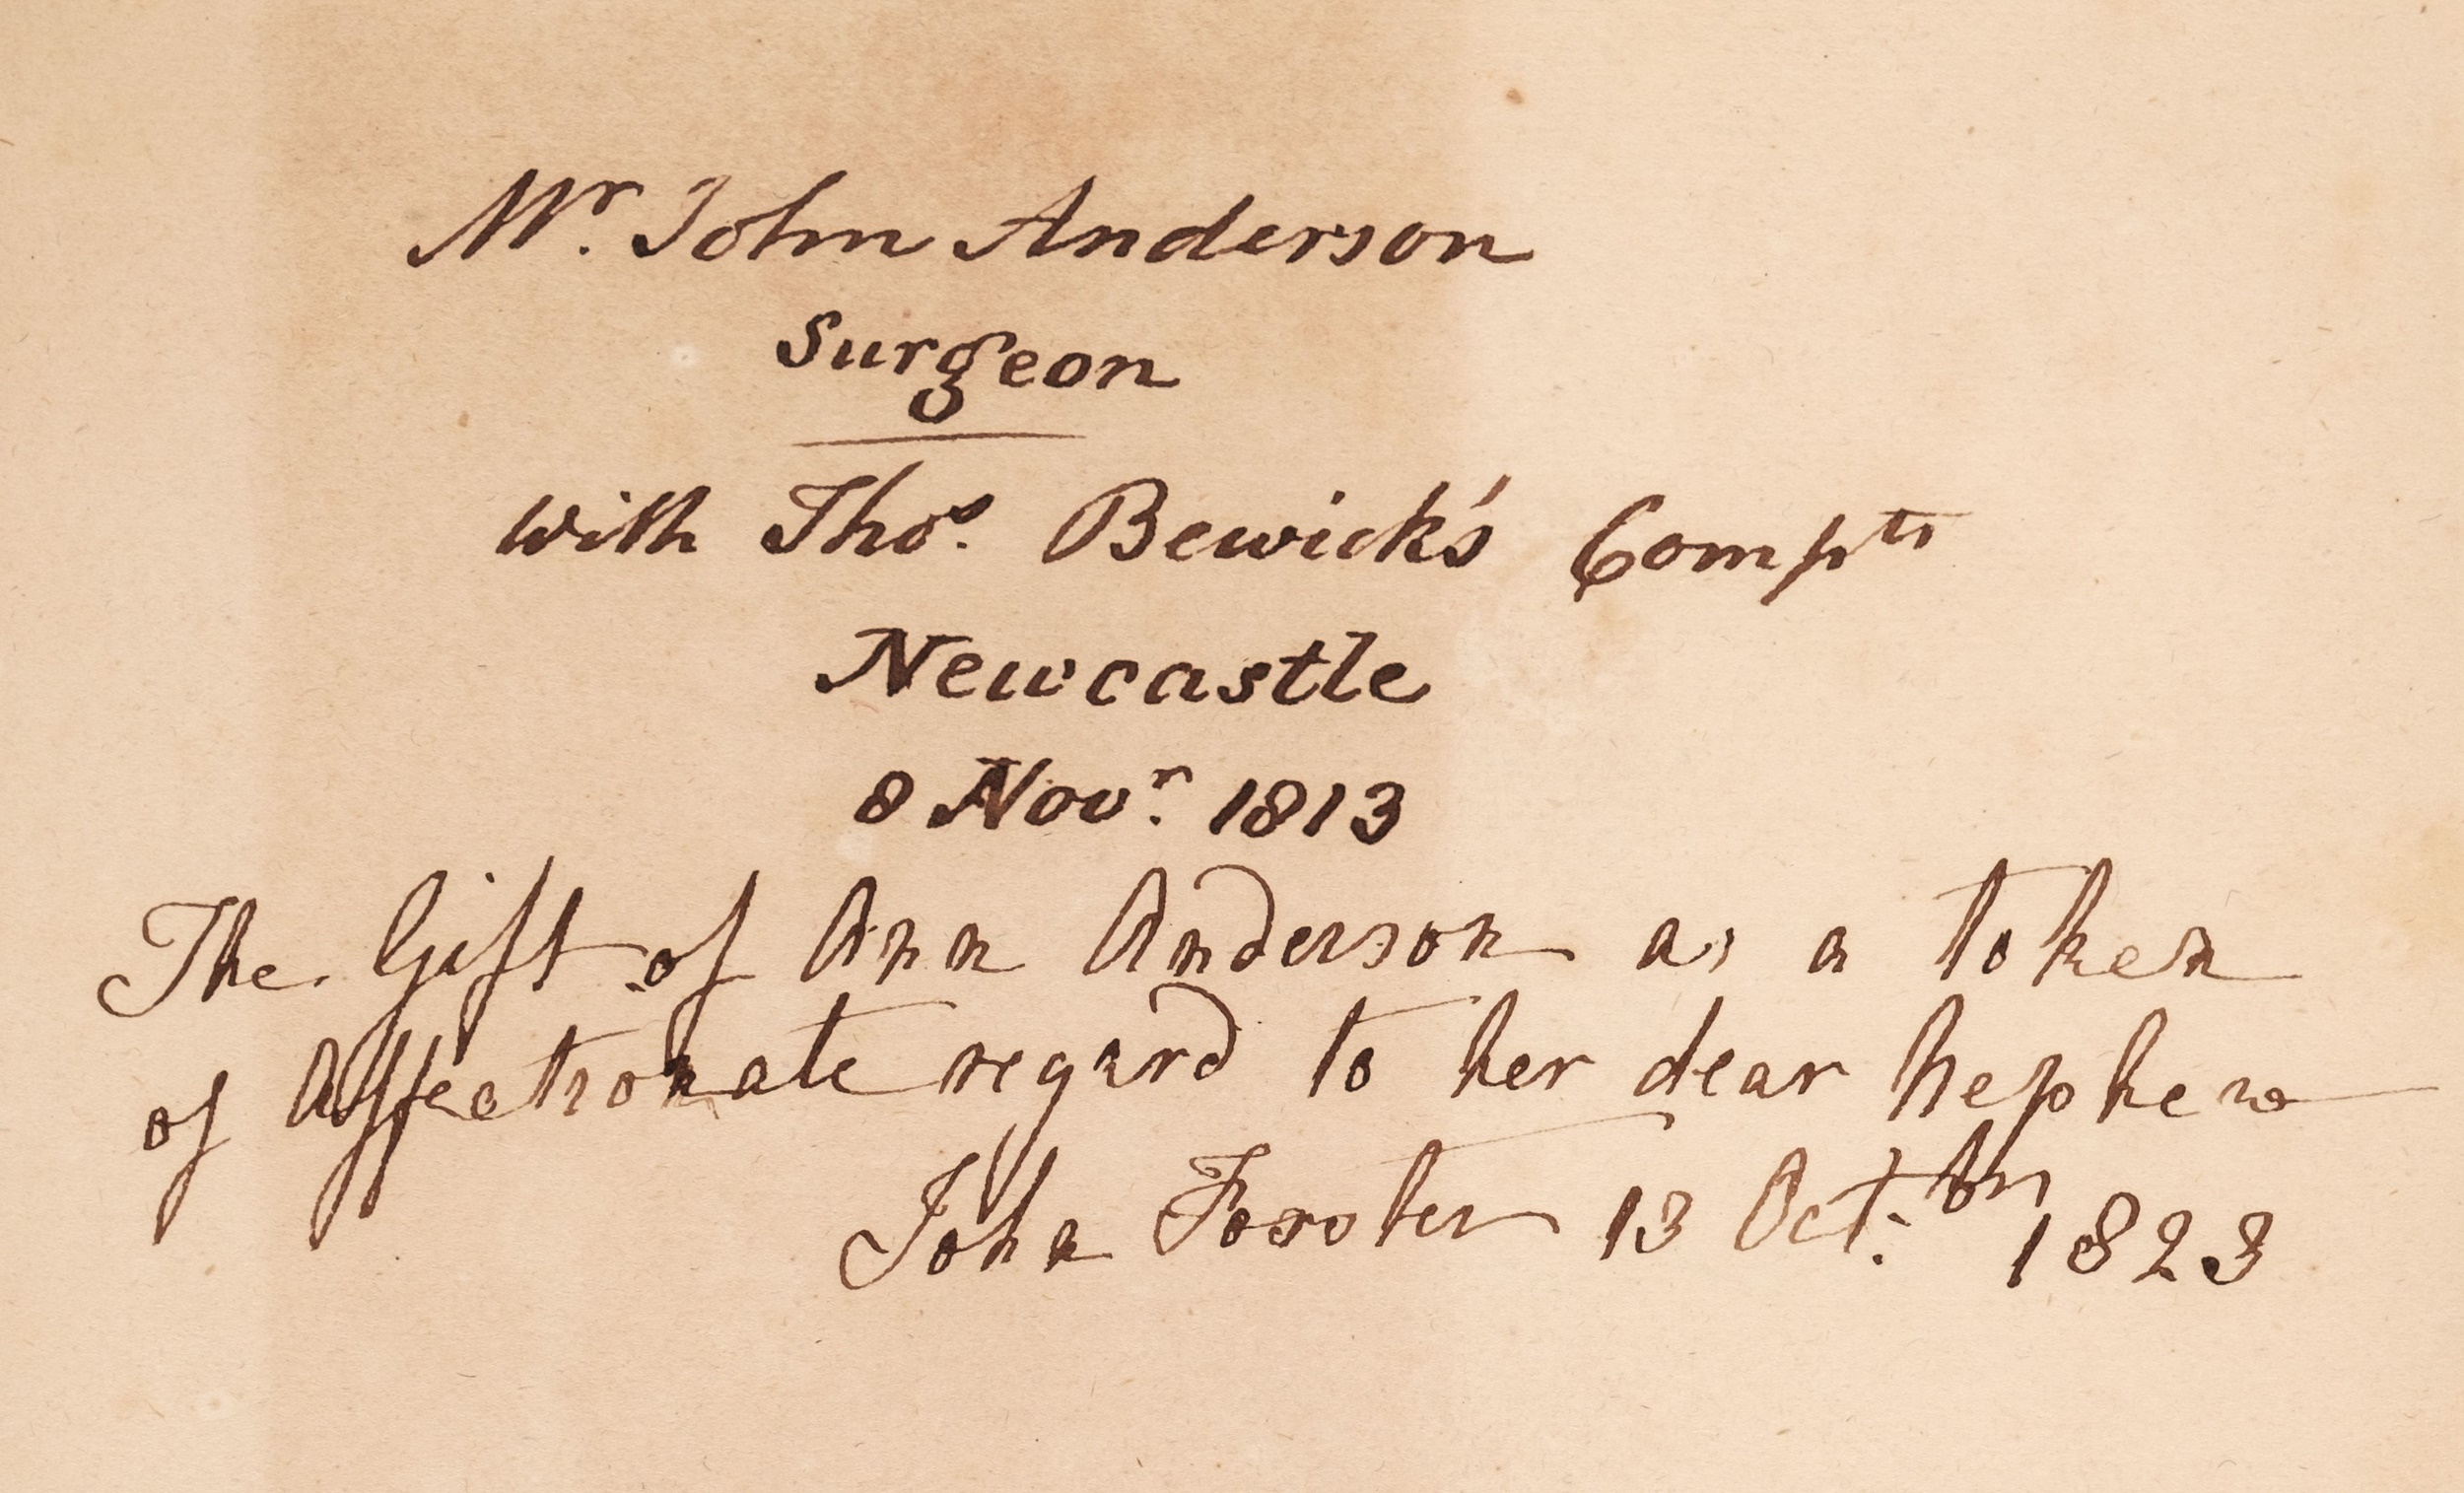 Mr. John Anderson
Surgeon
with Thos. Bewick's Compts
Newcastle
8 Novr. 1813
The Gift of Ann Anderson as a token
of Affectionate regard to her dear Nephew
John Forster 13 Oct.ber 1823